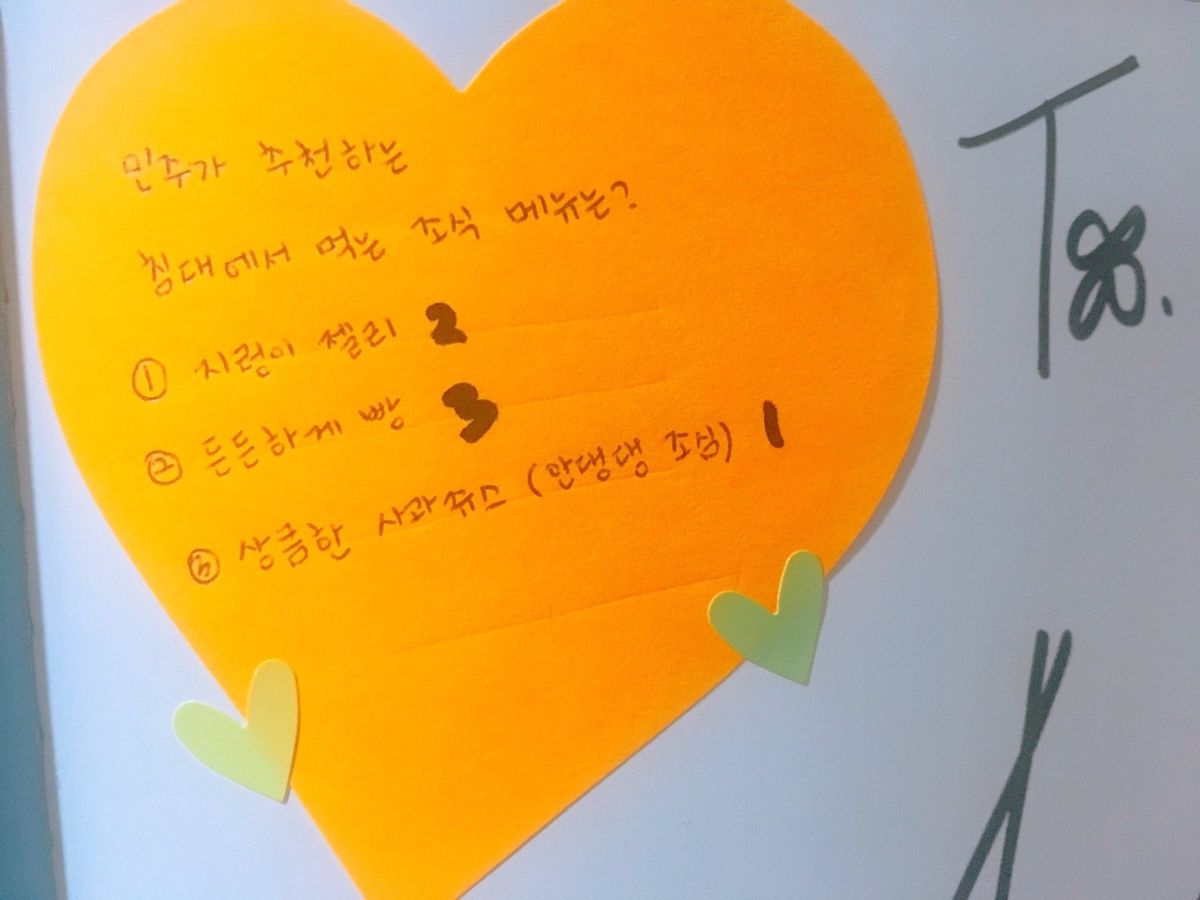 민주가 추천하는
침대에서 먹는 조식 메뉴는?
① 지렁이 젤리 2
② 든든하게 빵 3
③ 상큼한 사과쥬스 (안댕댕 조심) 1
To.